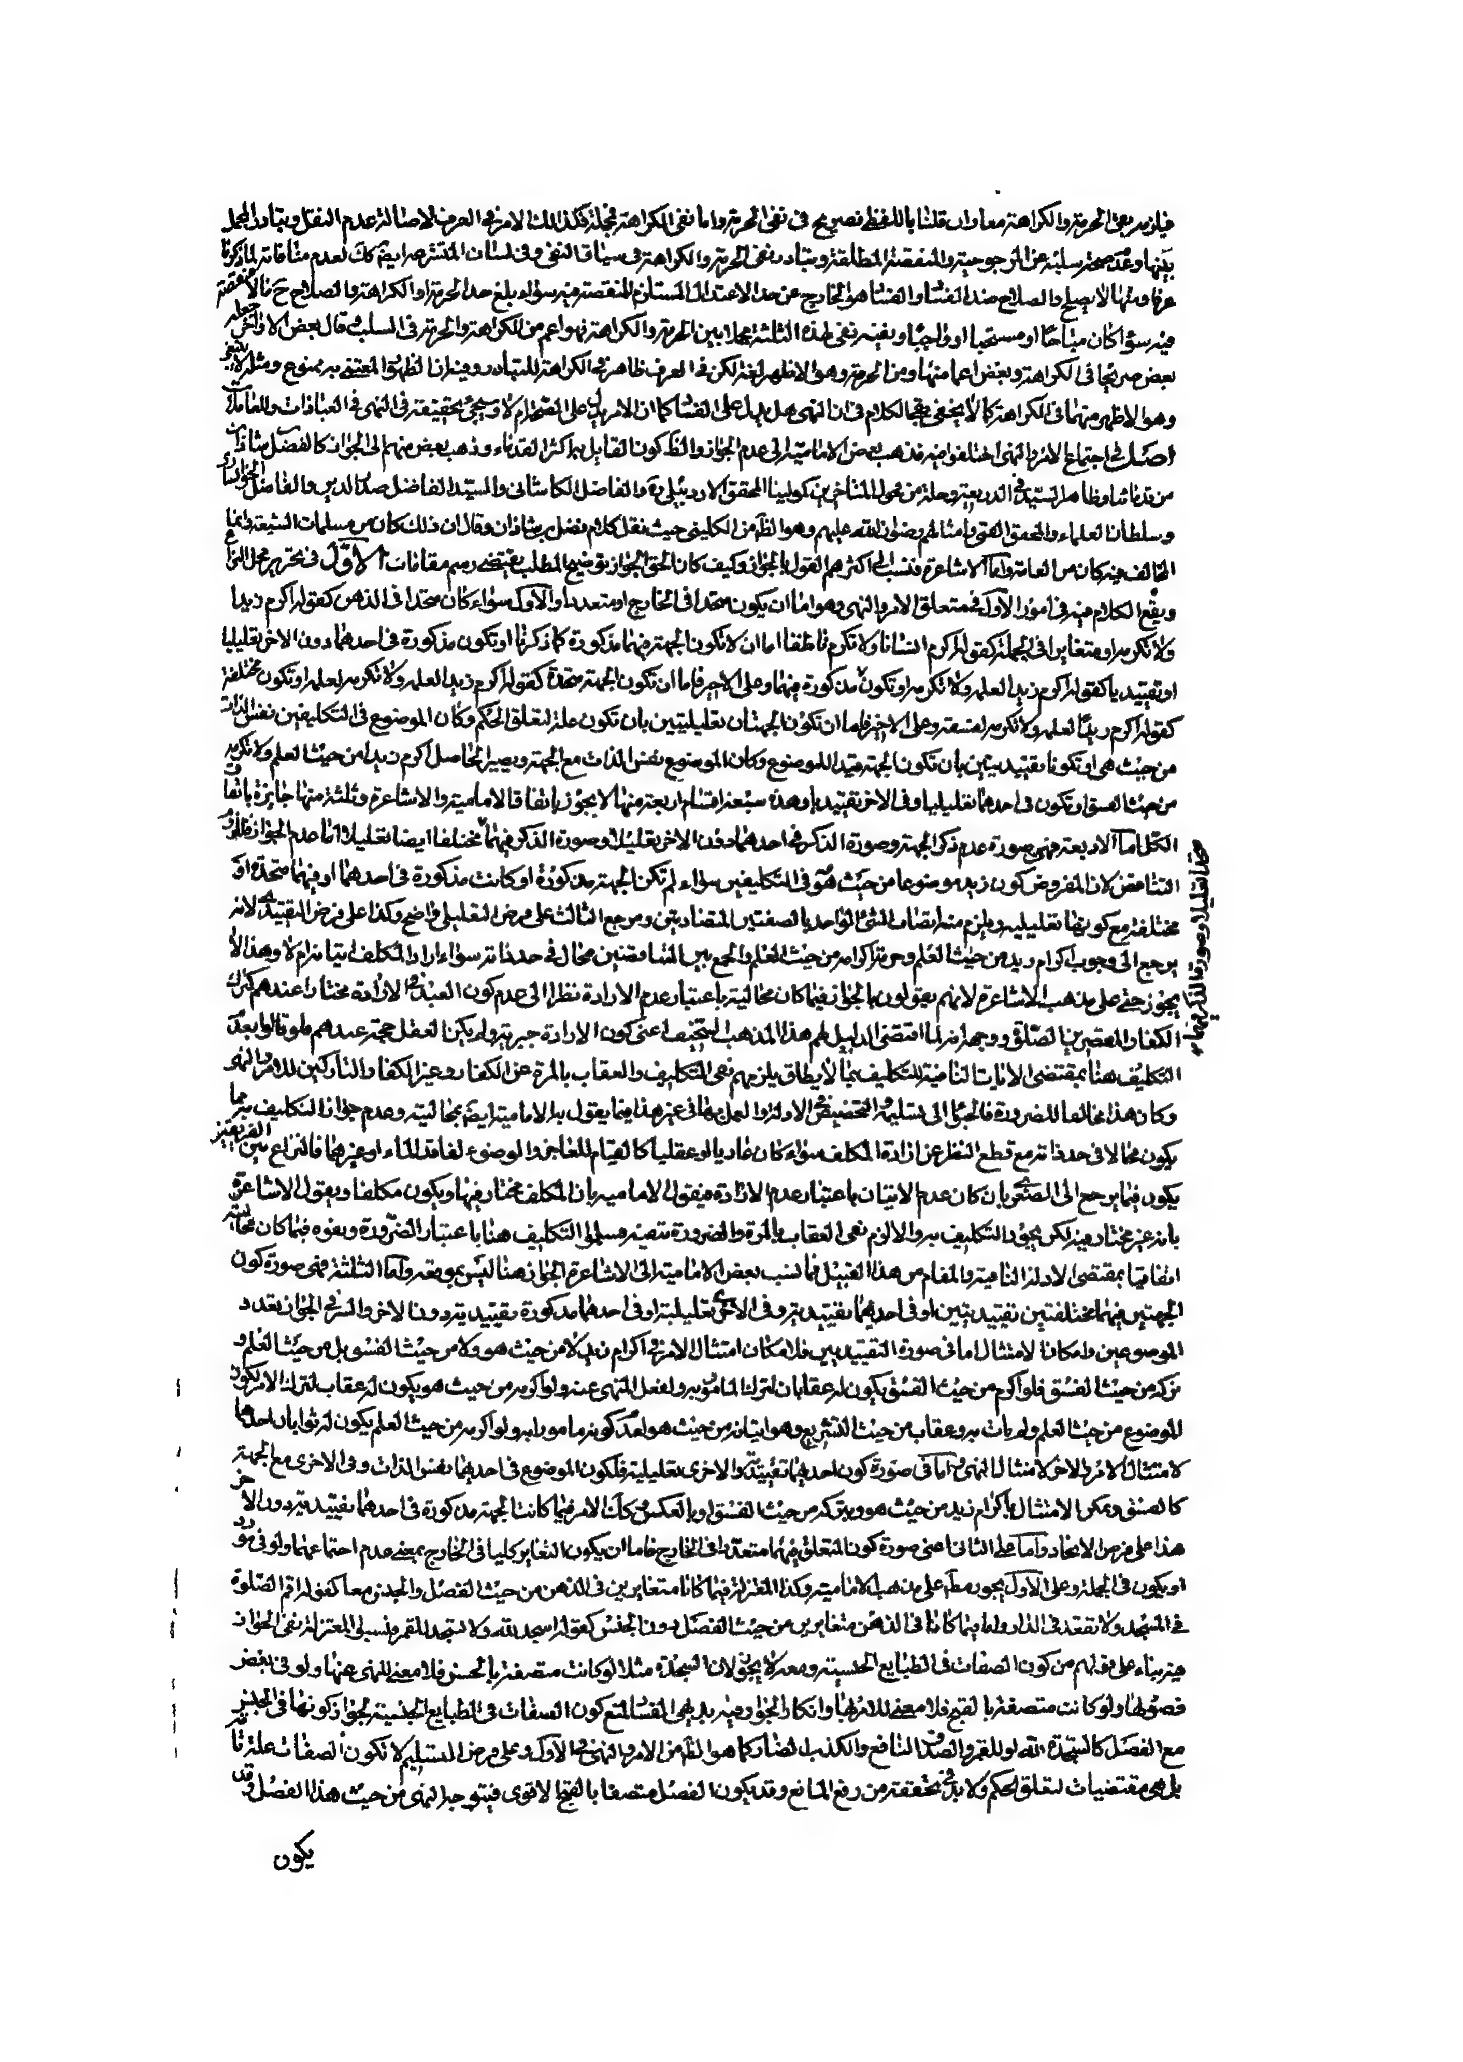 فيلزمه بقى الحرمة والكراهة معا وان قلنا باللفظ نصريح فى نفى الحرمة واما نفى الكراهة فمجملة فكذا لك الامر فى العرف لاصالة عدم النقل وتبادر المجمل
بينهما وعدم صحة سلبه عن المرجوحية والمنقصة المطلقة وتبادر نفى الحرمة والكراهة فى سياق النفى وفى لسان المتشرعة ايضا كك لعدم منافاته لما ذكرنا
عرفا ومنها لا يصلح والصلاح ضد الفساد والفساد هو الخارج عن حد الاعتدال المستلزم للمنقصة فيه سواء بلغ حد الحرمة او الكراهة والصلاح ح ما لا منقصة
فيه سواء كان مباحا او مستحبا او واجبا وبقيه نفى لهذه الثلثة مجملا بين الحرمة والكراهة فهو اعم من الكراهة والحرمة فى السلب وقال بعض الاواخر جعله
بعض صريحا فى الكراهة وبعض اعم منها ومن الحرمة وهو الاظهر لغة لكن فى العرف ظاهر فى الكراهة للتبادر وفيه ان الظهور المعتنى به ممنوع ومثله لا ينبغى
وهو الاظهر منهما فى الكراهة كما لا يخفى بقى الكلام فى ان النهى هل يدل على الفساد كما ان الامر يدل على الصحة ام لا وسيجئ تحقيقه فى النهى فى العبادات والمعاملات
اصل فى اجتماع الامر والنهى اختلفوا فيه فذهب بعض الامامية الى عدم الجواز والظ كون القائل به اكثر القدماء وذهب بعض منهم الى الجواز كالفضل بن شاذان
من قدمائنا وظاهر السيد فى الذريعة وجملة من فحول المتاخرين كمولينا المحقق الاردبيلى ره والفاضل الكاشانى والسيد الفاضل صدر الدين والفاضل الخوانسارى
وسلطان العلماء والمحقق القمى وامثالهم رضوان الله عليهم وهو الظ من الكلينى حيث نقل كلام فضل بن شاذان وقال ان ذلك كان من مسلمات الشيعة وانما
المخالف فيه كان من العامة واما الاشاعرة فنسب الى اكثرهم القول بالجواز وكيف كان الحق الجواز توضيح المطلب يقتضى رسم مقامات الاول فى تحرير محل النزاع
ويقع الكلام فيه فى امور الاول فى متعلق الامر والنهى وهو اما ان يكون متحدا فى الخارج او متعددا والاول سواء كان متحدا فى الذهن كقوله اكرم زيدا
ولا تكرمه او متغايرا فى الجملة كقوله اكرم انسانا ولا تكرم ناطقا اما ان لا تكون الجهة فيهما مذكورة كما ذكرنا او تكون مذكورة فى احدهما دون الاخر تعليليا
او تقييديا كقوله اكرم زيدا لعلمه ولا تكرمه او تكون مذكورة فيهما وعلى الاخير فاما ان تكون الجهة متحدة كقوله اكرم زيدا لعلمه ولا تكرمه لعلمه او تكون مختلفة
كقوله اكرم زيدا لعلمه ولا تكرمه لفسقه وعلى الاخير فاما ان تكون الجهتان تعليليتين بان تكون علة لتعلق الحكم وكان الموضوع فى التكليفين نفس الذات
من حيث هى او تكونا تقييديتين بان تكون الجهة قيدا للموضوع وكان الموضوع نفس الذات مع الجهة ويصير الحاصل اكرم زيدا من حيث العلم ولا تكرمه
من حيث الفسق او تكون فى احدهما تعليليا وفى الاخر تقييديا وهذه سبعة اقسام اربعة منها لا يجوز باتفاق الامامية والاشاعرة وثلثة منها جايزة باتفاق
الكل اما الاربعة فهى صورة عدم ذكر الجهة وصورة الذكر فى احدهما دون الاخر تعليلا وصورة الذكر فيهما مختلفا ايضا تعليلا اما عدم الجواز فللزوم
متحدا تعليلا وصورة الذكر فيهما
التناقض لان المفروض كون زيد موضوعا من حيث هو فى التكليفين سواء لم تكن الجهة مذكورة او كانت مذكورة فى احدهما او فيهما متحدة او
مختلفة مع كونها تعليلية ويلزم منه اتصاف الشئ الواحد بالصفتين المتضادتين ومرجع الثالث على فرض التعليلى واضح وكذا على فرض التقييدى لانه
يرجع الى وجوب اكرام زيد من حيث العلم وحرمة اكرامه من حيث العلم والجمع بين المتناقضين محال فى حد ذاته سواء اراد المكلف اتيانه ام لا وهذا لا
يجوز حتى على مذهب الاشاعرة لانهم يقولون بالجواز فيما كان محالية باعتبار عدم الارادة نظرا الى عدم كون العبد فى الارادة مختارا عندهم كترك
الكفار والمقصرين الصلوة ووجهه انه لما اقتضى الدليل لهم هذا المذهب السخيف اعنى كون الارادة جبرية ولم يكن العقل حجة عندهم فلو قالوا بعدم
التكليف هنا بمقتضى الايات النافية للتكليف بما لا يطاق يلزمهم نفى التكليف والعقاب بالمرة عن الكفار وغير الكفار والتاركين للاوامر والنهى
وكان هذا مخالفا للضرورة فالجئا الى تسليمه والتخصيص فى الادلة والعمل بها فى غير هذا فيما يقول به الامامية ايضا بمحاليته وعدم جواز التكليف به مما
يكون محالا فى حد ذاته مع قطع النظر عن ارادة المكلف سواء كان عاديا او عقليا كالقيام للعاجز والوضوء لفاقد الماء او غيرهما فالنزاع بين الفريقين
يكون فيما يرجع الى الصغرى بان كان عدم الاتيان باعتبار عدم الارادة فيقول الامامية بان المكلف مختار فيها ويكون مكلفا ويقول الاشاعرة
بانه غير مختار فيه لكن يجوز التكليف به والا لزم نفى العقاب بالمرة والضرورة تنفيه مسلموا التكليف هنا باعتبار الضرورة ونفوه فيما كان محاليته
اتفاقيا بمقتضى الادلة النافية والمقام من هذا القبيل فما نسب بعض الامامية الى الاشاعرة الجواز هنا ليس بموقعه واما الثلثة فهى صورة كون
الجهتين فيهما مختلفتين تقييديتين او فى احدهما تقييدية وفى الاخرى تعليلية او فى احدهما مذكورة تقييدية دون الاخر والسر فى الجواز تعدد
الموضوعين وامكان الامتثال اما فى صورة التقييديين فلامكان امتثال الامر فى اكرام زيد لا من حيث هو ولا من حيث الفسق بل من حيث العلم و
تركه من حيث الفسق فلو اكرم من حيث الفسق يكون له عقابان لترك المامور به ولفعل المنهى عنه ولو اكرمه من حيث هو يكون له عقاب لترك الامر لكون
الموضوع من حيث العلم ولم يات به وعقاب من حيث التشريع وهو اتيانه من حيث هو لعدم كونه مامورا به ولو اكرمه من حيث العلم يكون له ثوابان احدهما
لامتثال الامر والاخر لامتثال النهى واما فى صورة كون احدهما تقييدية والاخرى تعليلية فلكون الموضوع فى احدهما نفس الذات وفى الاخرى مع الجهة
كالفسق ويمكن الامتثال باكرام زيد من حيث هو وبتركه من حيث الفسق او بالعكس وكذا الامر فيما كانت الجهة مذكورة فى احدهما تقييدية دون الاخر
هذا على فرض الاتحاد واما على الثانى اعنى صورة كون المتعلق فيهما متعددا فى الخارج فاما ان يكون التغاير كليا فى الخارج بمعنى عدم اجتماعهما ولو فى مورد
او يكون فى الجملة وعلى الاول يجوز مطلقا على مذهب الامامية وكذا المعتزلة فيما كانا متغايرين فى الذهن من حيث الفصل والجنس معا كقوله اقم الصلوة
فى المسجد ولا تقعد فى الدار واما فيما كانا فى الذهن متغايرين من حيث الفصل دون الجنس كقوله اسجد لله ولا تسجد للقمر فنسب الى المعتزلة نفى الجواز
فيه بناء على مذهبهم من كون الصفات فى الطبايع الجنسية ومعه لا يجوز لان السجدة مثلا لو كانت متصفة بالحسن فلا معنى للنهى عنها ولو فى بعض
فصولها ولو كانت متصفة بالقبح فلا معنى للامر بها وانكار الجواز فيه بديهى الفساد لمنع كون الصفات فى الطبايع الجنسية لجواز كونها فى الجنس
مع الفصل كالسجدة لله او للقمر والصدق النافع والكذب الضار كما هو الظ من الامر والنهى فى الاول وعلى فرض التسليم لا تكون الصفات علة تامة
بل هى مقتضيات لتعلق الحكم ولا بد فى تحققه من رفع المانع وقد يكون الفصل متصفا بالقبح الاقوى فيتوجه النهى من حيث هذا الفصل وقد
يكون